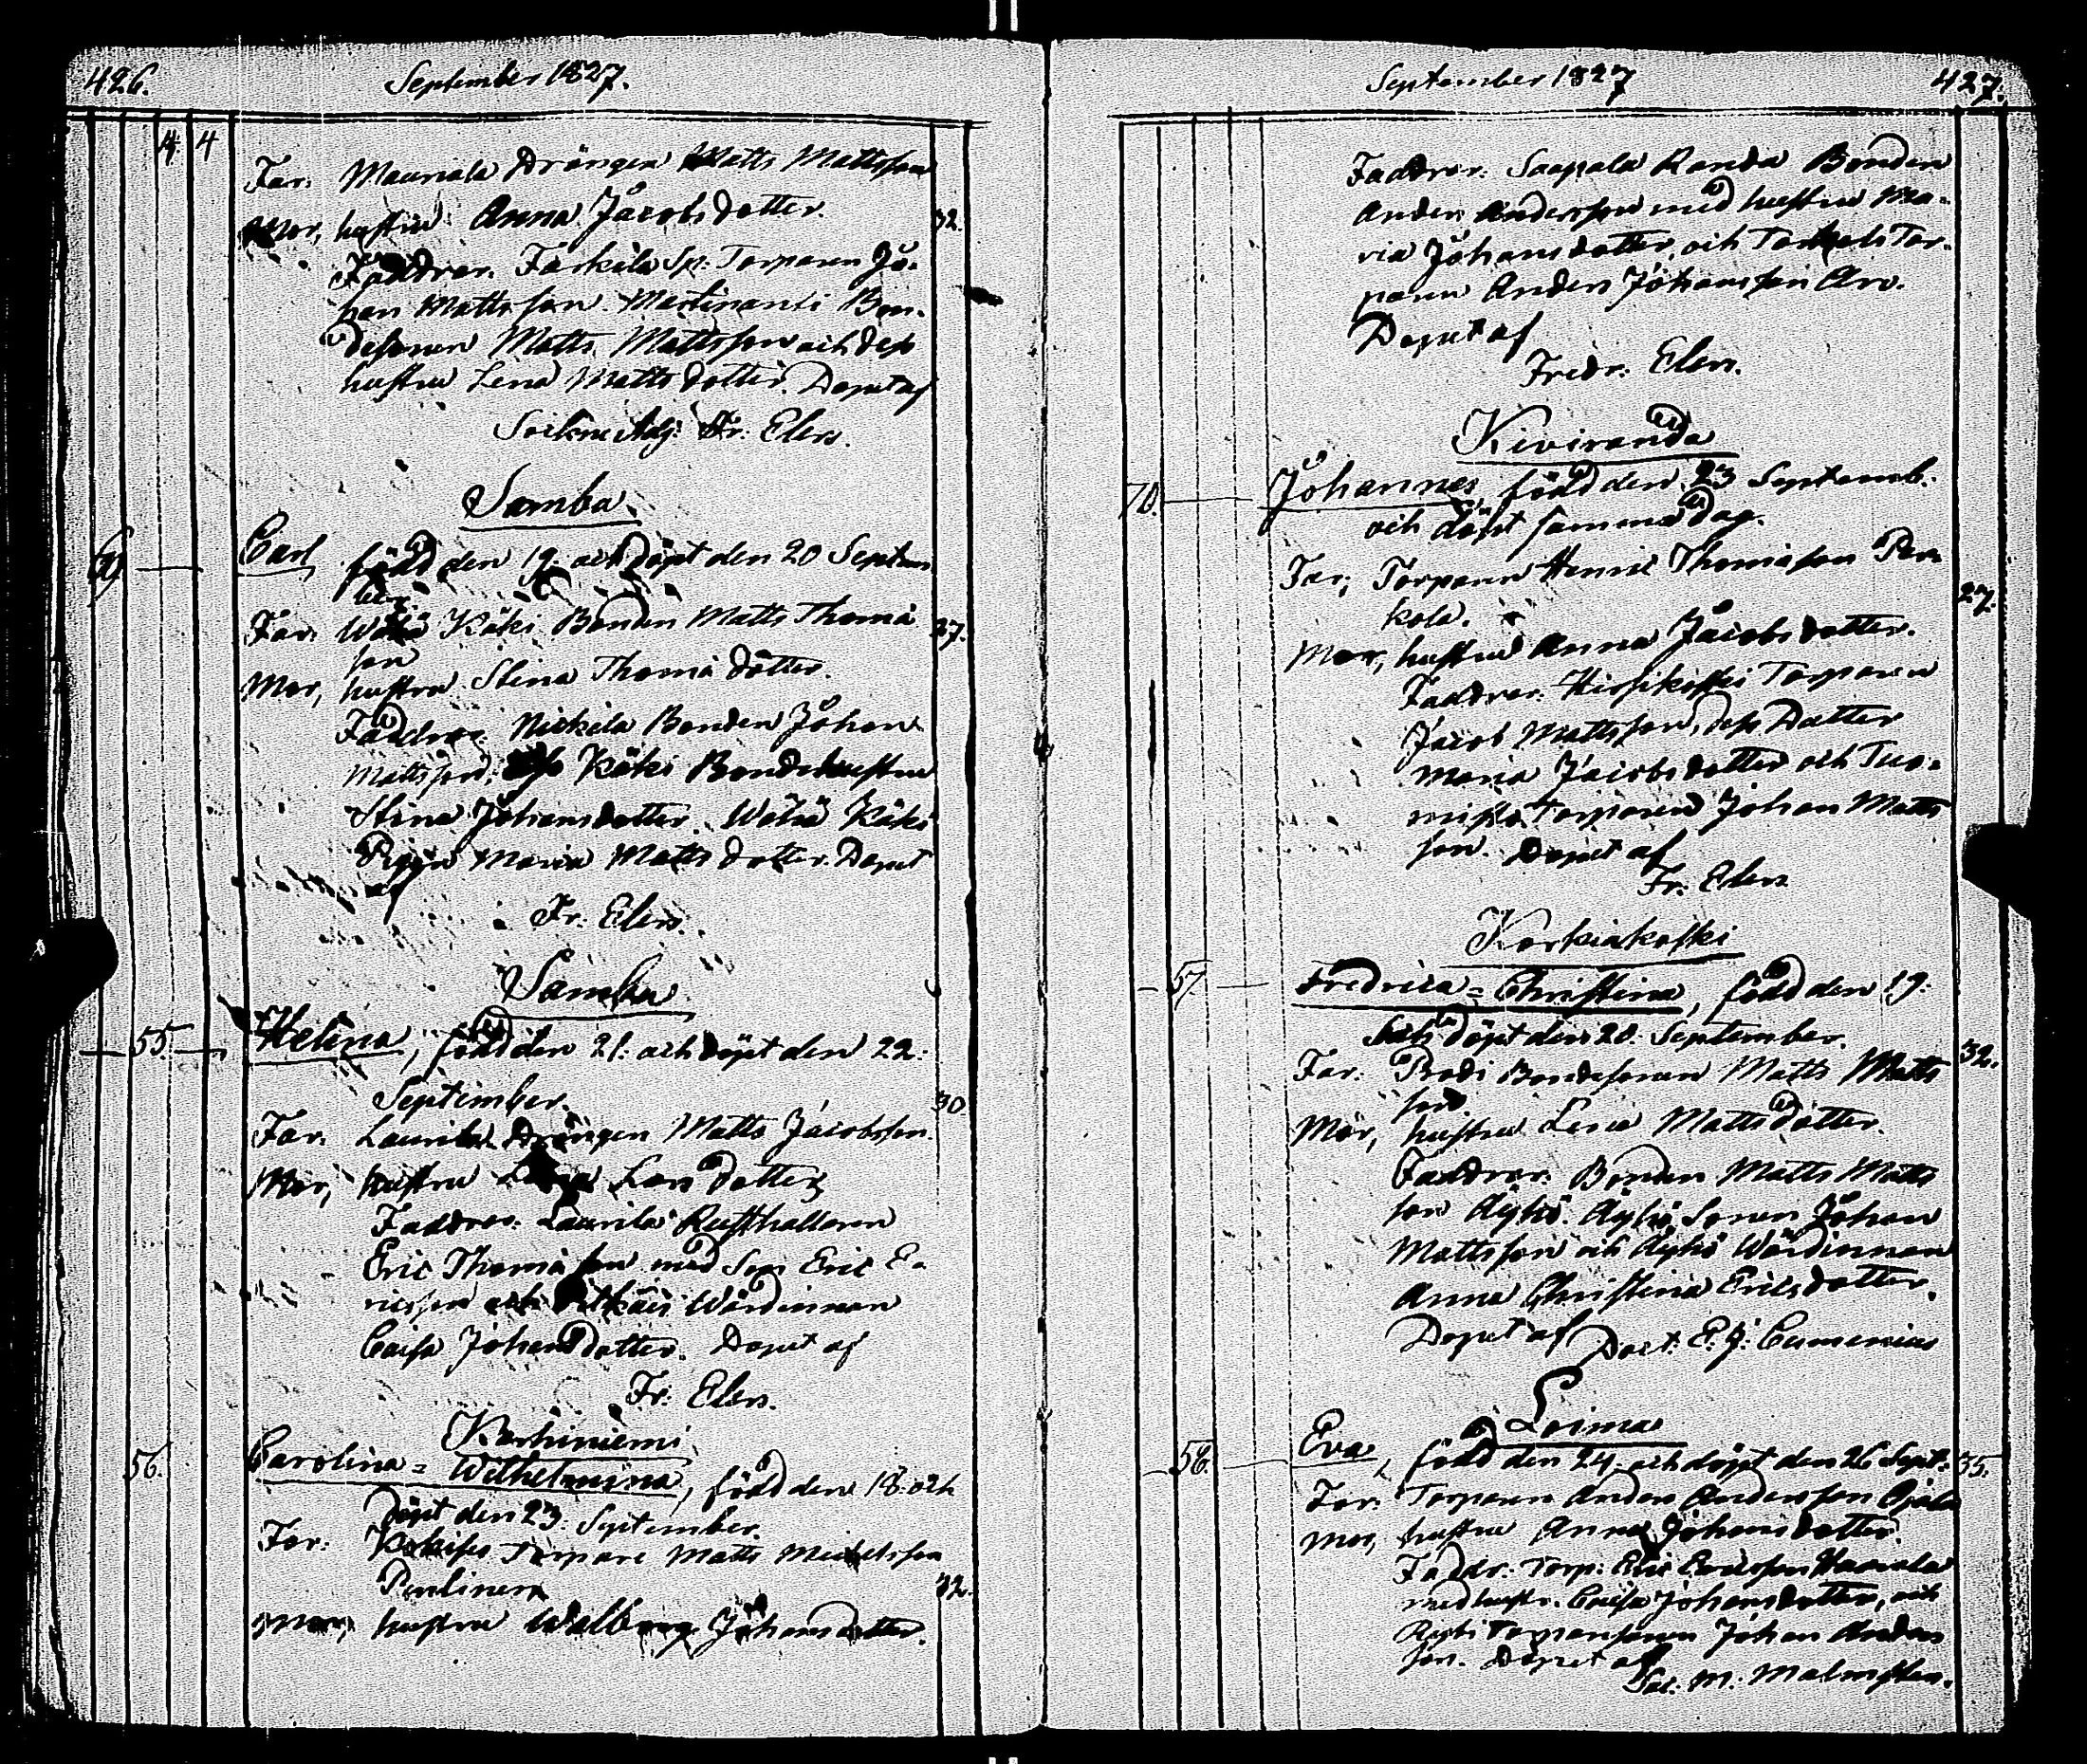 426.
September 1827.
4 4
Far: Mauriala Drängen Matts Mattsson
Mor, hustru Anna Jacobsdotter. 32.
Faddrar: Farkila Sp: Torparen Jo-
han Mattsson. Martinanti Bon-
desonen Matts Mattsson och dess
hustru Lena Matts dotter. Döpt af
Sockne Adj: Fr: Elers.
Samba
69 Carl född den 19. och döpt den 20 Septem
ber
Far: Käki Bonden Matts Thomas 37.
son
Mor, hustru Stina Thomas dotter.
Faddrar. Nickila Bonden Johan
Mattsson. Käki Bondehustru
Stina Johansdotter. Käki
Pigan Maria Matts dotter. Döpt
af
Fr: Elers.
Samba
55. Helena, född den 21. och döpt den 22.
September. 30
Far: Laurila Drängen Matts Jacobsson.
Mor, hustru Lars dotter
Faddrar: Laurila Rusthållaren
Eric Thomasson med Son Eric E-
ricsson och Wärdinnan
Caisa Johansdotter. Döpt af
Fr: Elers.
Karhiniemi
56. Carolina = Wilhelmina, född den 18. och
döpt den 23. September.
Far: Torpare Matts Michelsson
32.
Mor, hustru Walborg Johansdotter.
September 1827
427.
Faddrar: Saapala Randa Bonden
Anders Andersson med hustru Ma-
ria Johansdotter, och Tor-
paren Anders Johansson Arv.
Döpt af
Fredr: Elers.
Kiviranda
70. Johannes, född den 23 Septemb.
och döpt samma dag.
Far; Torparen Henric Thomasson Pen
kola. 27.
Mor, hustru Anna Jacobsdotter.
Faddrar: Torparen
Jacob Mattsson, dess Dotter
Maria Jacobsdotter och Tuo-
Torparen Johan Matts
son. Döpt af
Fr: Elers
Korkiakoski
57. Fredrica = Christina, född den 19.
och döpt den 20. September.
Far: Prodi Bondesonen Matts Matts 32.
son
Mor, hustru Lena Mattsdotter.
Faddrar: Bonden Matts Matts
son Äyhö. Äyhö Sonen Johan
Mattsson och Äyhö Wärdinnan
Anna Christina Ericsdotter.
Döpt af Doct: E. J: Cumenius
Loima
58. Eva, född den 24. och döpt den 26 Sept: 35.
Far: Torparen Anders Andersson Ojala
Mor, hustru Anna Johansdotter.
Faddr: Torp: Eric Ericsson
med hustr. Caisa Johansdotter, och
Torparesonen Johan Anders
son. Döpt af
Sac: M: Malmsten.